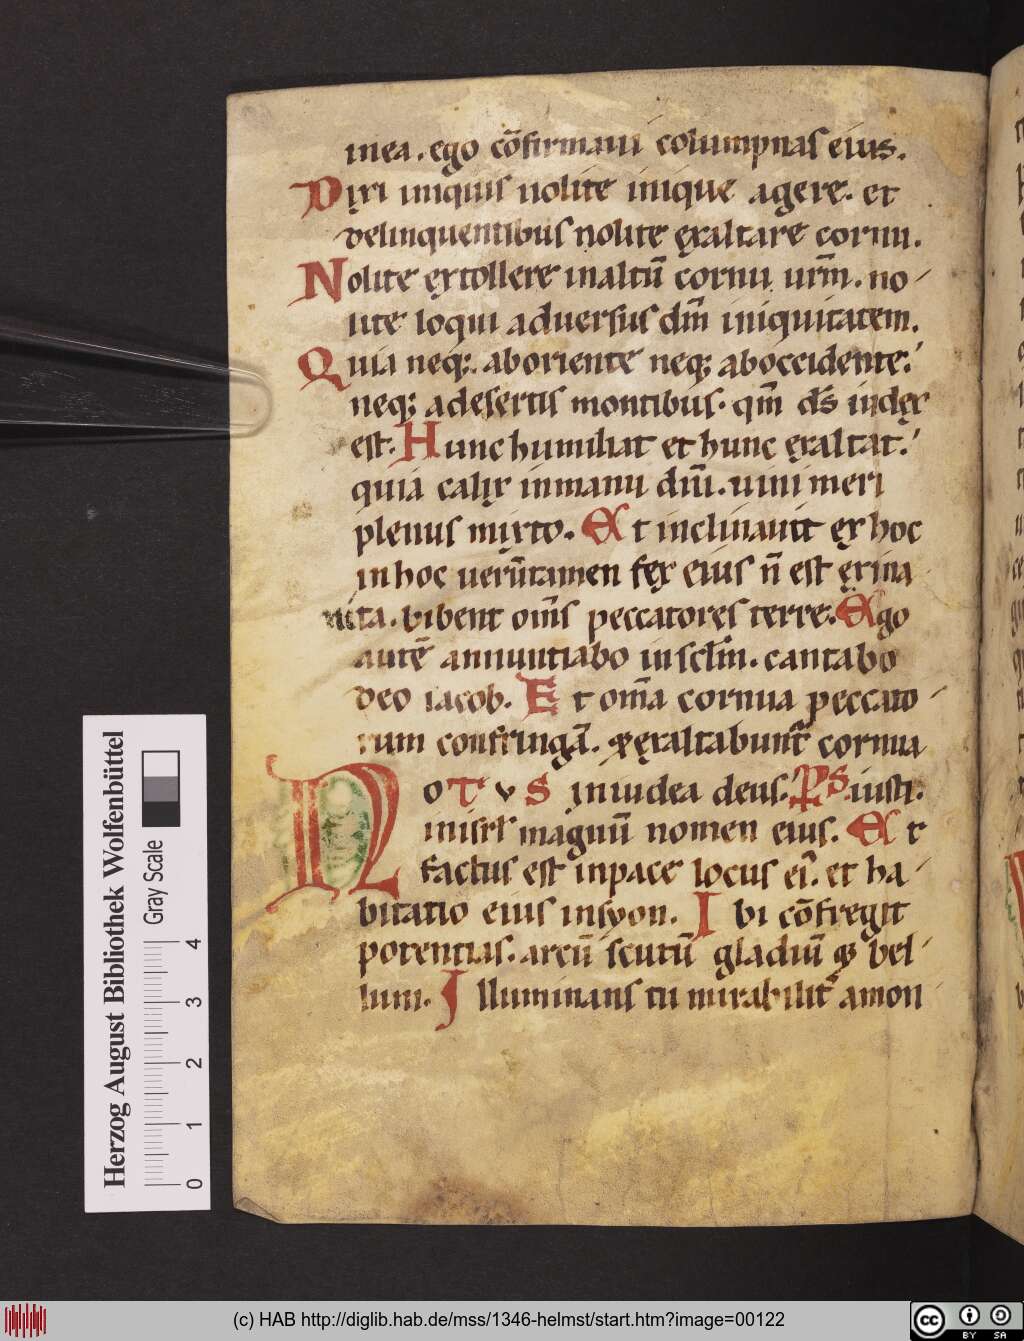 in ea. ego cōfirmaui columpnas eius.
Dixi iniquis nolite inique agere. et
delinquentibus nolite exaltare cornu.
Nolite extollere in altū cornu ur̄m. no-
lite loqui aduersus dm̄ iniquitatem.
Quia neq; ab oriente neq; ab occidente.
neq; a desertis montibus. qm̄ ds̄ iudex
est. Hunc humiliat et hunc exaltat.
quia calix in manu dn̄i. uini meri
plenus mixto. Et inclinauit ex hoc
in hoc uerūtamen fex eius n̄ est exina
nita. bibent om̄s peccatores terre. Ego
autē annuntiabo in sclm̄. cantabo
deo iacob. Et om̄a cornua peccato-
rum confringā. & exaltabunt̄ cornua
NOTVS in iudea deus. PS. iusti.
in isrl magnū nomen eius. Et
factus est in pace locus ei. et ha-
bitatio eius in syon. Ibi cōfregit
potentias. arcū scutū gladiū & bel-
lum. Illuminans tu mirabilit̄ a mon
Herzog August Bibliothek Wolfenbüttel
Gray Scale
0 1 2 3 4
(c) HAB http://diglib.hab.de/mss/1346-helmst/start.htm?image=00122
cc BY SA